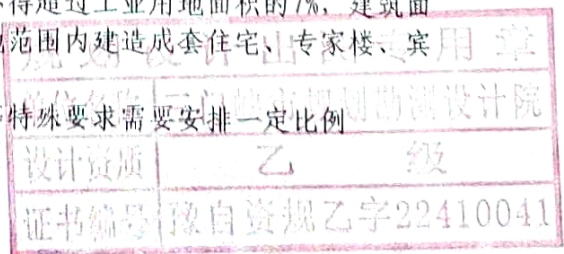 得超过工业用地面积的7%, 建筑面
范围内建造成套住宅、专家楼、宾
用章
特殊要求需要安排一定比例
规划勘测设计院
设计资质 乙 级
证书编号 豫自资规乙字22410041